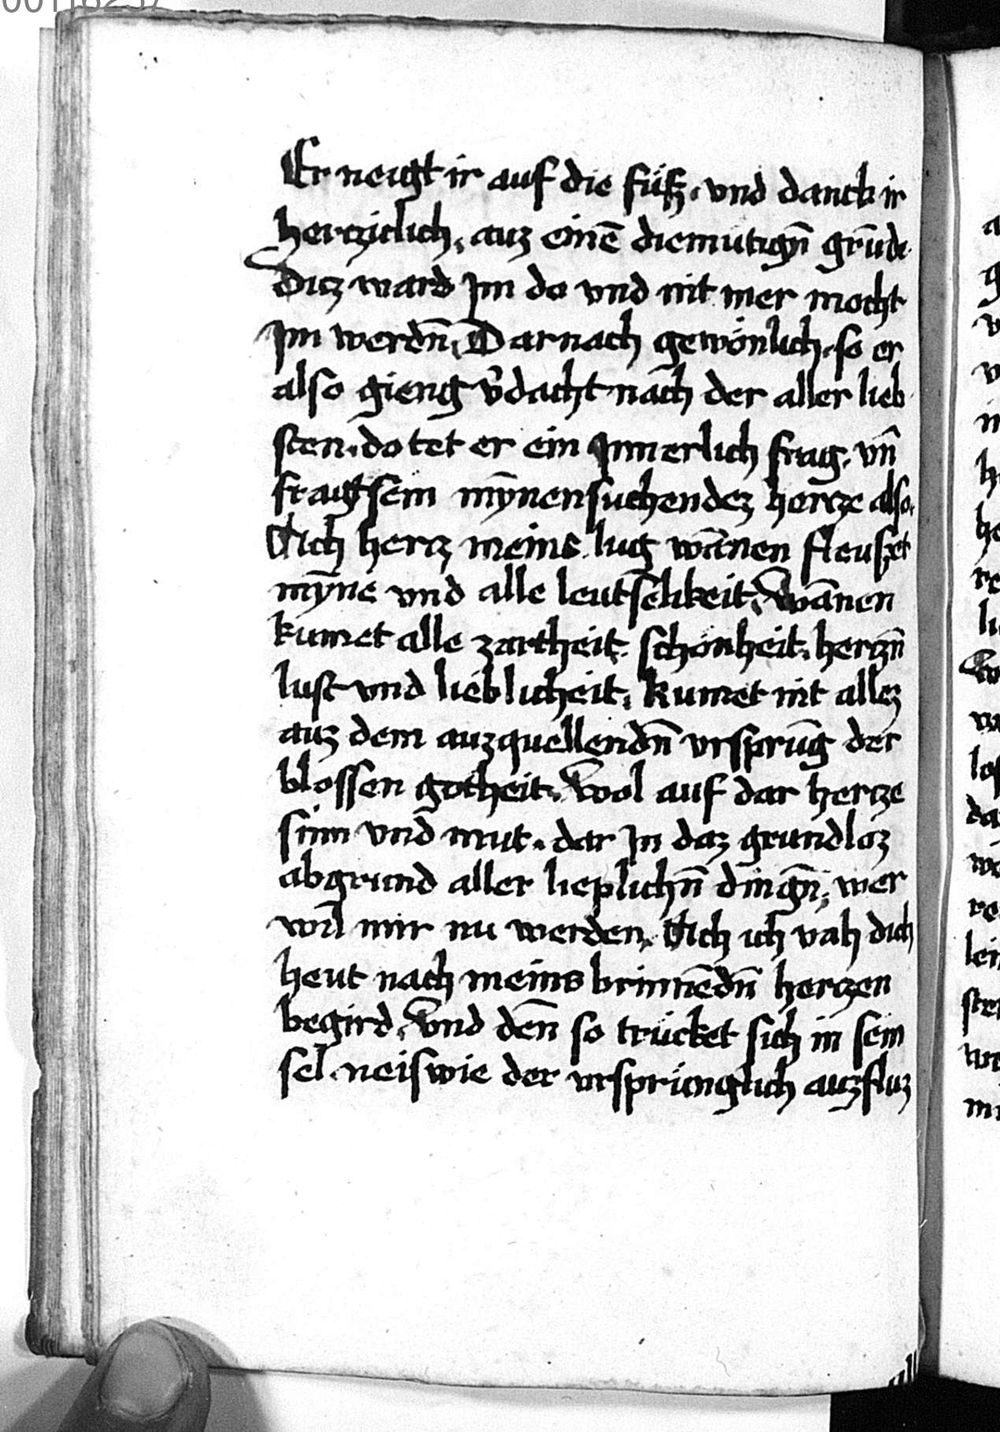 Er neigt ir auf die füsz. vnd danck ir
hercziclich. auz einē diemütign̄ grūde.
Dicz ward Im do vnd nit mer mocht
Im werdn̄. Darnach gewönlich. so er
also gieng v̄dacht nach der aller lieb
sten. do tet er ein Innerlich frag. vn̄
fragt sein mȳnensuchendez hercze also.
Ach hercz meins lug wānnen fleuszet
mȳne vnd alle leutselikeit. wānen
kumet alle zartheit. schönheit. herczn̄
lust vnd lieblicheit. kumet nit allez
auz dem auzquellendn̄ vrsprūg der
blossen gotheit. wol auf dar hercze
sinn vnd mut. dar In daz grundloz
abgrund aller lieplichn̄ dingn̄. wer
wil mir nu werden. Ach ich vah dich
heut nach meins brinnēdn̄ herczen
begird. vnd den̄ so trücket sich in sein
sel. neiswie der vrsprünglich auzfluz